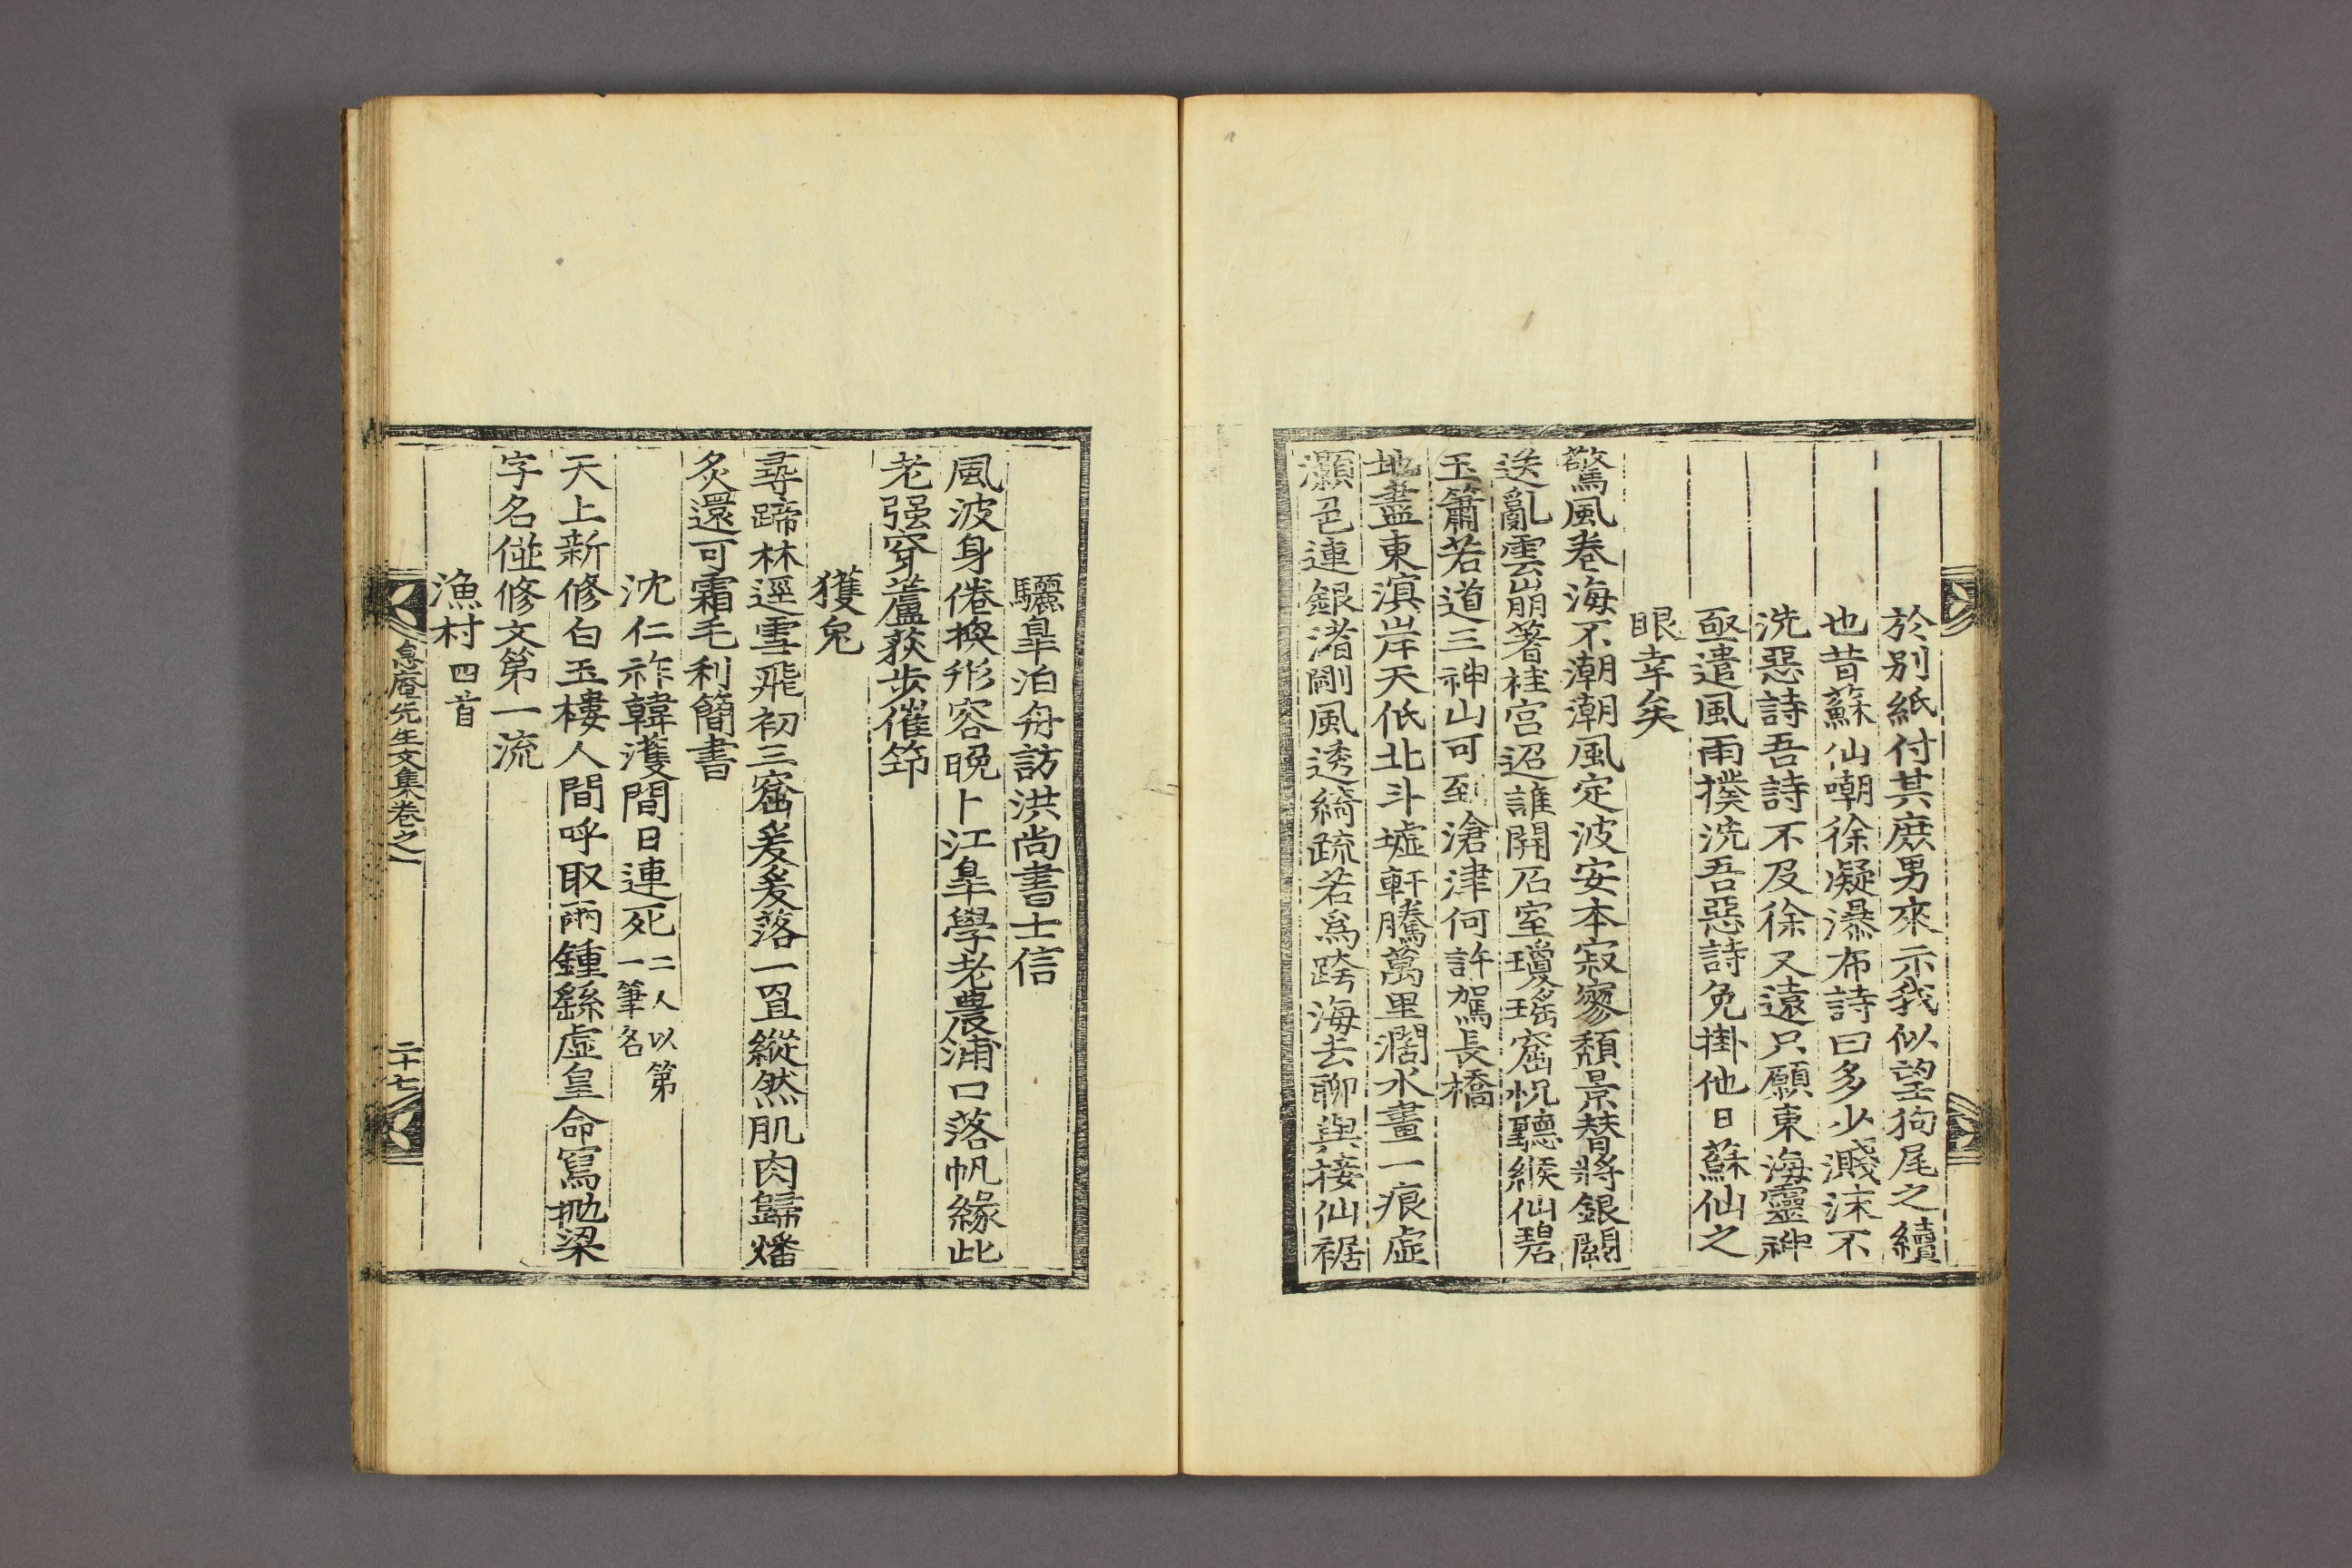 於別紙付其庶男來示我似望狗尾之續
也昔蘇仙嘲徐凝瀑布詩曰多少濺沫不
洗惡詩吾詩不及徐又遠只願東海靈神
亟遣風雨撲洗吾惡詩免掛他日蘇仙之
眼幸矣
驚風卷海不潮潮風定波安本寂寥頹景替將銀闕
送亂雲崩著桂宮迢誰開石室瓊瑤窟怳聽緱仙碧
玉簫若道三神山可到滄津何許駕長橋
地盡東溟岸天低北斗墟軒騰萬里濶水畫一痕虛
灝色連銀渚剛風透綺疏若爲跨海去聊與接仙裾
驪皐泊舟訪洪尚書士信
風波身倦換形容晩卜江皐學老農浦口落帆緣此
老强穿蘆荻步催筇
獲兔
尋蹄林逕雪飛初三窟爰爰落一罝縱然肌肉歸燔
炙還可霜毛利簡書
沈仁祚韓濩間日連死二人以第一筆名
天上新修白玉樓人間呼取兩鍾繇虛皇命寫拋梁
字名偿修文第一流
漁村四首
息庵先生文集卷之一
二十七